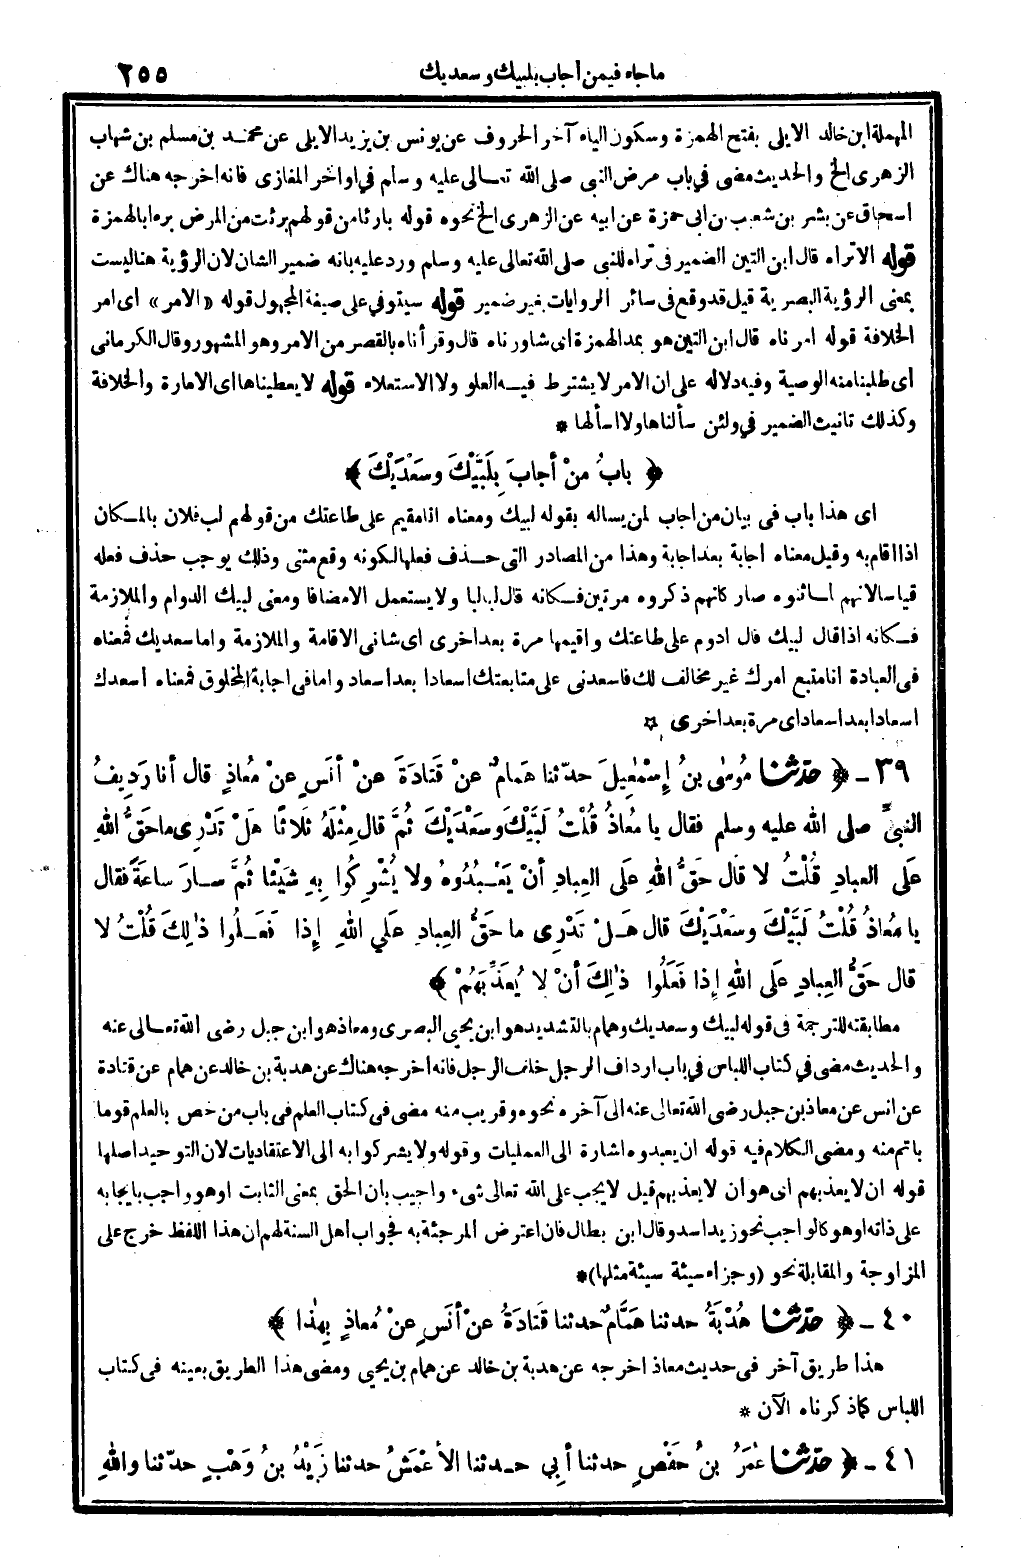 ما جاء فيمن أجاب بلبيك وسعديك ٢٥٥
المهملة ابن خالد الايلي بفتح الهمزة وسكون الياء آخر الحروف عن يونس بن يزيد الايلى عن محمد بن مسلم بن شهاب
الزهرى الخ والحديث مضى في باب مرض النبى صلى الله تعالى عليه وسلم في اواخر المغازى فانه اخرجه هناك عن
اسحاق عن بشر بن شعيب بن ابى حمزة عن ابيه عن الزهرى الخ نحوه قوله بارئا من قولهم برئت من المرض برءا بالهمزة
قوله الاتراه قال ابن التين الضمير فى تراه للنبى صلى الله تعالى عليه وسلم ورد عليه بانه ضمير الشان لان الرؤية هنا ليست
بمعنى الرؤية البصرية قيل قد وقع فى سائر الروايات بغير ضمير قوله سيتوفي على صيغة المجهول قوله «الامر» اى امر
الخلافة قوله امرناه قال ابن التين هو بمد الهمزة اى شاورناه قال وقرأناه بالقصر من الامر وهو المشهور وقال الكرمانى
اى طلبنا منه الوصية وفيه دلاله على ان الامر لا يشترط فيه العلو ولا الاستعلاء قوله لا يعطيناها اى الامارة والخلافة
وكذلك تانيث الضمير في ولئن سألناها ولا اسألها *
﴿ بابُ منْ أجابَ بِلَبَّيْكَ وسَعْدَيْكَ ﴾
اى هذا باب فى بيان من اجاب لمن يساله بقوله لبيك ومعناه انا مقيم على طاعتك من قولهم لب فلان بالمكان
اذا اقام به وقيل معناه اجابة بعد اجابة وهذا من المصادر التى حذف فعلها لكونه وقع مثنى وذلك يوجب حذف فعله
قياسا لانهم لما ثنوه صار كانهم ذكروه مرتين فكانه قال لبا لبا ولا يستعمل الا مضافا ومعنى لبيك الدوام والملازمة
فكانه اذا قال لبيك قال ادوم على طاعتك واقيمها مرة بعد اخرى اى شانى الاقامة والملازمة واما سعديك فمعناه
فى العبادة انا متبع امرك غير مخالف لك فاسعدنى على متابعتك اسعادا بعد اسعاد واما فى اجابة المخلوق فمعناه اسعدك
اسعادا بعد اسعاد اى مرة بعد اخرى ☆
٣٩ - ﴿ حدّثنا مُوسٰى بنُ إسْمٰعِيلَ حدّثنا هَمامٌ عنْ قَتَادَةَ عنْ أنَسٍ عنْ مُعاذٍ قال أنا رَدِيفُ
النبيِّ صلى الله عليه وسلم فقال يا مُعاذُ قُلْتُ لَبَّيْكَ وسَعْدَيْكَ ثُمَّ قال مِثْلَهُ ثَلاَثًا هَلْ تَدْرِى ما حَقُّ اللهِ
عَلَى العِبادِ قُلْتُ لا قال حَقُّ اللهِ عَلَى العِبادِ أنْ يَعْبُدُوهُ ولا يُشْرِكُوا بِهِ شَيْئًا ثُمَّ سارَ ساعَةً فقال
يا مُعاذُ قُلْتُ لَبَّيْكَ وسَعْدَيْكَ قال هَلْ تَدْرِى ما حَقُّ العِبادِ عَلَي اللهِ إذا فَعَلُوا ذٰلِكَ قُلْتُ لا
قال حَقُّ العِبادِ عَلَى اللهِ إذا فَعَلُوا ذٰلِكَ أنْ لا يُعَذِّبَهُمْ ﴾
مطابقته للترجمة فى قوله لبيك وسعديك وهمام بالتشديد هو ابن يحيى البصرى ومعاذ هو ابن جبل رضى الله تعالى عنه
والحديث مضى في كتاب اللباس في باب ارداف الرجل خلف الرجل فانه اخرجه هناك عن هدبة بن خالد عن همام عن قتادة
عن انس عن معاذ بن جبل رضى الله تعالى عنه الى آخره نحوه وقريب منه مضى فى كتاب العلم فى باب من خص بالعلم قوما
باتم منه ومضى الكلام فيه قوله ان يعبدوه اشارة الى العمليات وقوله ولا يشركوا به الى الاعتقاديات لان التوحيد اصلها
قوله ان لا يعذبهم اى هو ان لا يعذبهم قيل لا يجب على الله تعالى شىء واجيب بان الحق بمعنى الثابت او هو واجب بايجابه
على ذاته او هو كالواجب نحو زيد اسد وقال ابن بطال فان اعترض المرجئة به فجواب اهل السنة لهم ان هذا اللفظ خرج على
المزاوجة والمقابلة نحو (وجزاء سيئة سيئة مثلها) *
٤٠ - ﴿ حدّثنا هُدْبَةُ حدثنا هَمَّامٌ حدثنا قَتَادَةُ عنْ أنَسٍ عنْ مُعاذٍ بِهٰذا ﴾
هذا طريق آخر فى حديث معاذ اخرجه عن هدبة بن خالد عن همام بن يحيى ومضى هذا الطريق بعينه فى كتاب
اللباس كما ذكرناه الآن *
٤١ - ﴿ حدّثنا عُمَرُ بنُ حَفْصٍ حدثنا أبي حدثنا الأعْمَشُ حدثنا زَيْدُ بنُ وَهْبٍ حدّثنا واللهِ